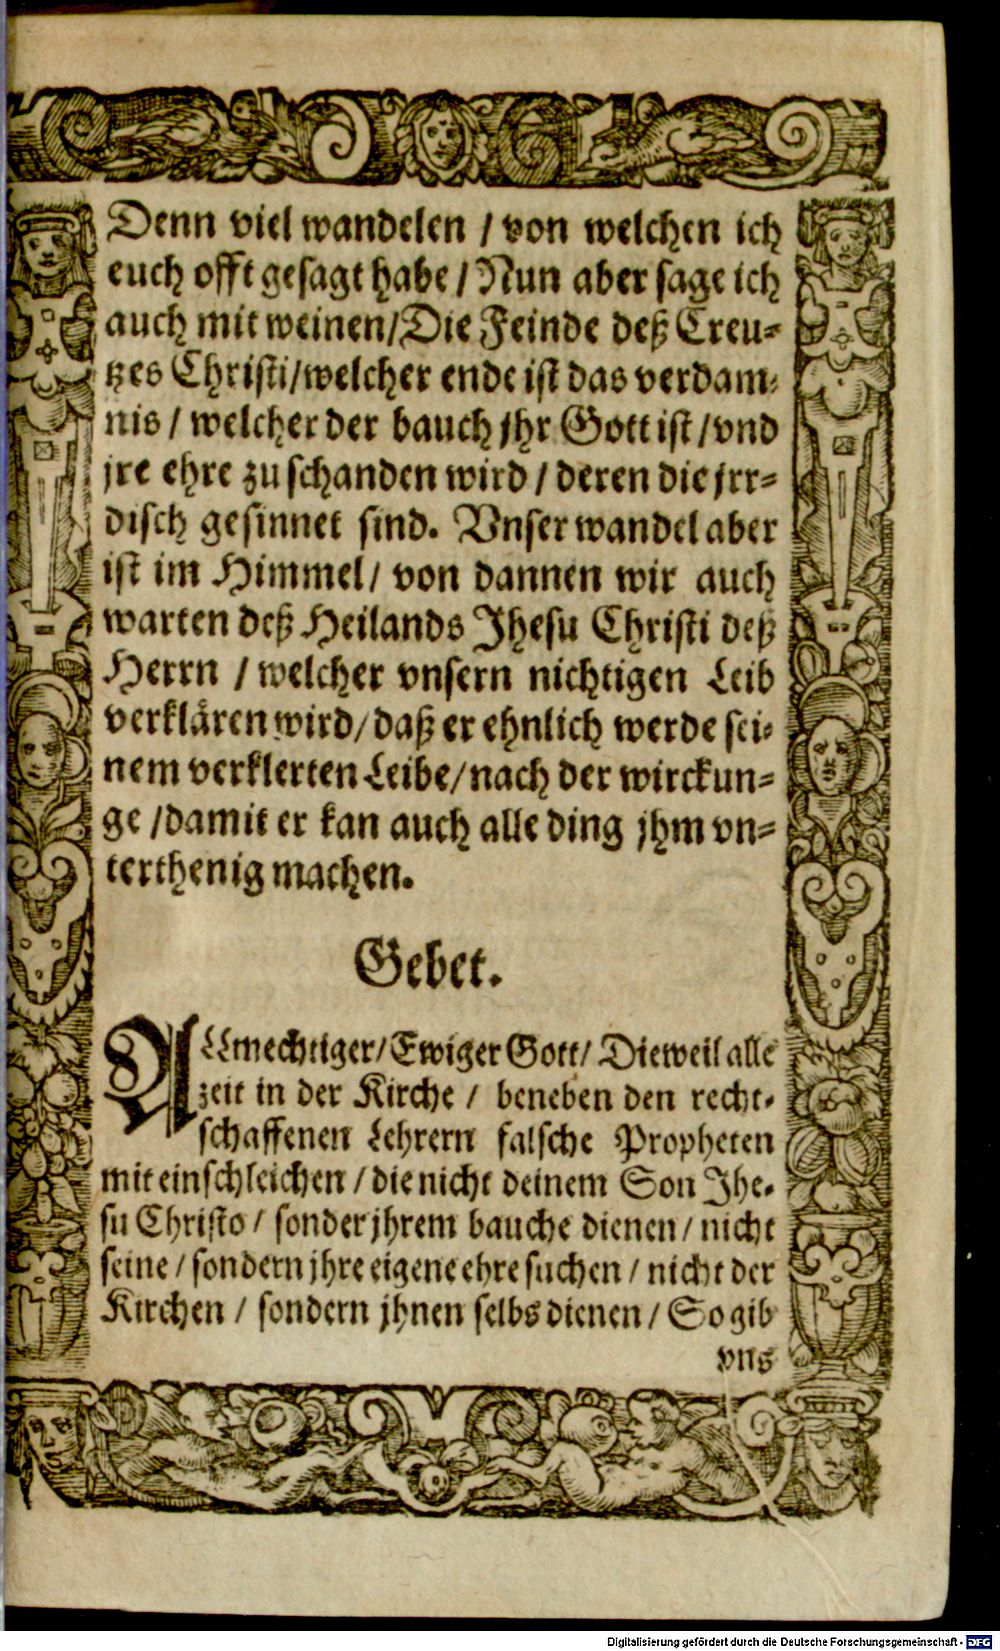 Denn viel wandelen / von welchen ich
euch offt gesagt habe / Nun aber sage ich
auch mit weinen/Die Feinde deß Creu-
tzes Christi/welcher ende ist das verdam-
nis / welcher der bauch jhr Gott ist / vnd
jre ehre zu schanden wird / deren die jrr-
disch gesinnet sind. Vnser wandel aber
ist im Himmel / von dannen wir auch
warten deß Heilands Jhesu Christi deß
Herrn / welcher vnsern nichtigen Leib
verklären wird / daß er ehnlich werde sei-
nem verklerten Leibe/nach der wirckun-
ge /damit er kan auch alle ding jhm vn-
terthenig machen.
Gebet.
ALLmechtiger/Ewiger Gott/ Dieweil alle
zeit in der Kirche / beneben den recht-
schaffenen Lehrern falsche Propheten
mit einschleichen / die nicht deinem Son Jhe-
su Christo / sonder jhrem bauche dienen / nicht
seine / sondern jhre eigene ehre suchen / nicht der
Kirchen / sondern jhnen selbs dienen / So gib
vns
Digitalisierung gefördert durch die Deutsche Forschungsgemeinschaft - DFG